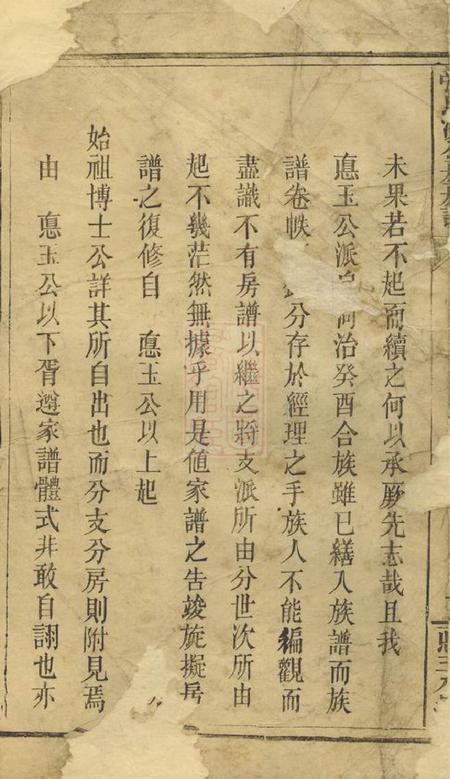 未果若不起而續之何以承厥先志哉且我
悳玉公派自同治癸酉合族雖已繕入族譜而族
譜卷帙分存於經理之手族人不能編觀而
盡識不有房譜以繼之將支派所由分世次所由
起不幾茫然無據乎用是値家譜之告竣旋擬房
譜之復修自　悳玉公以上起
始祖博士公詳其所自出也而分支分房則附見焉
由　悳玉公以下胥遵家譜體式非敢自詡也亦